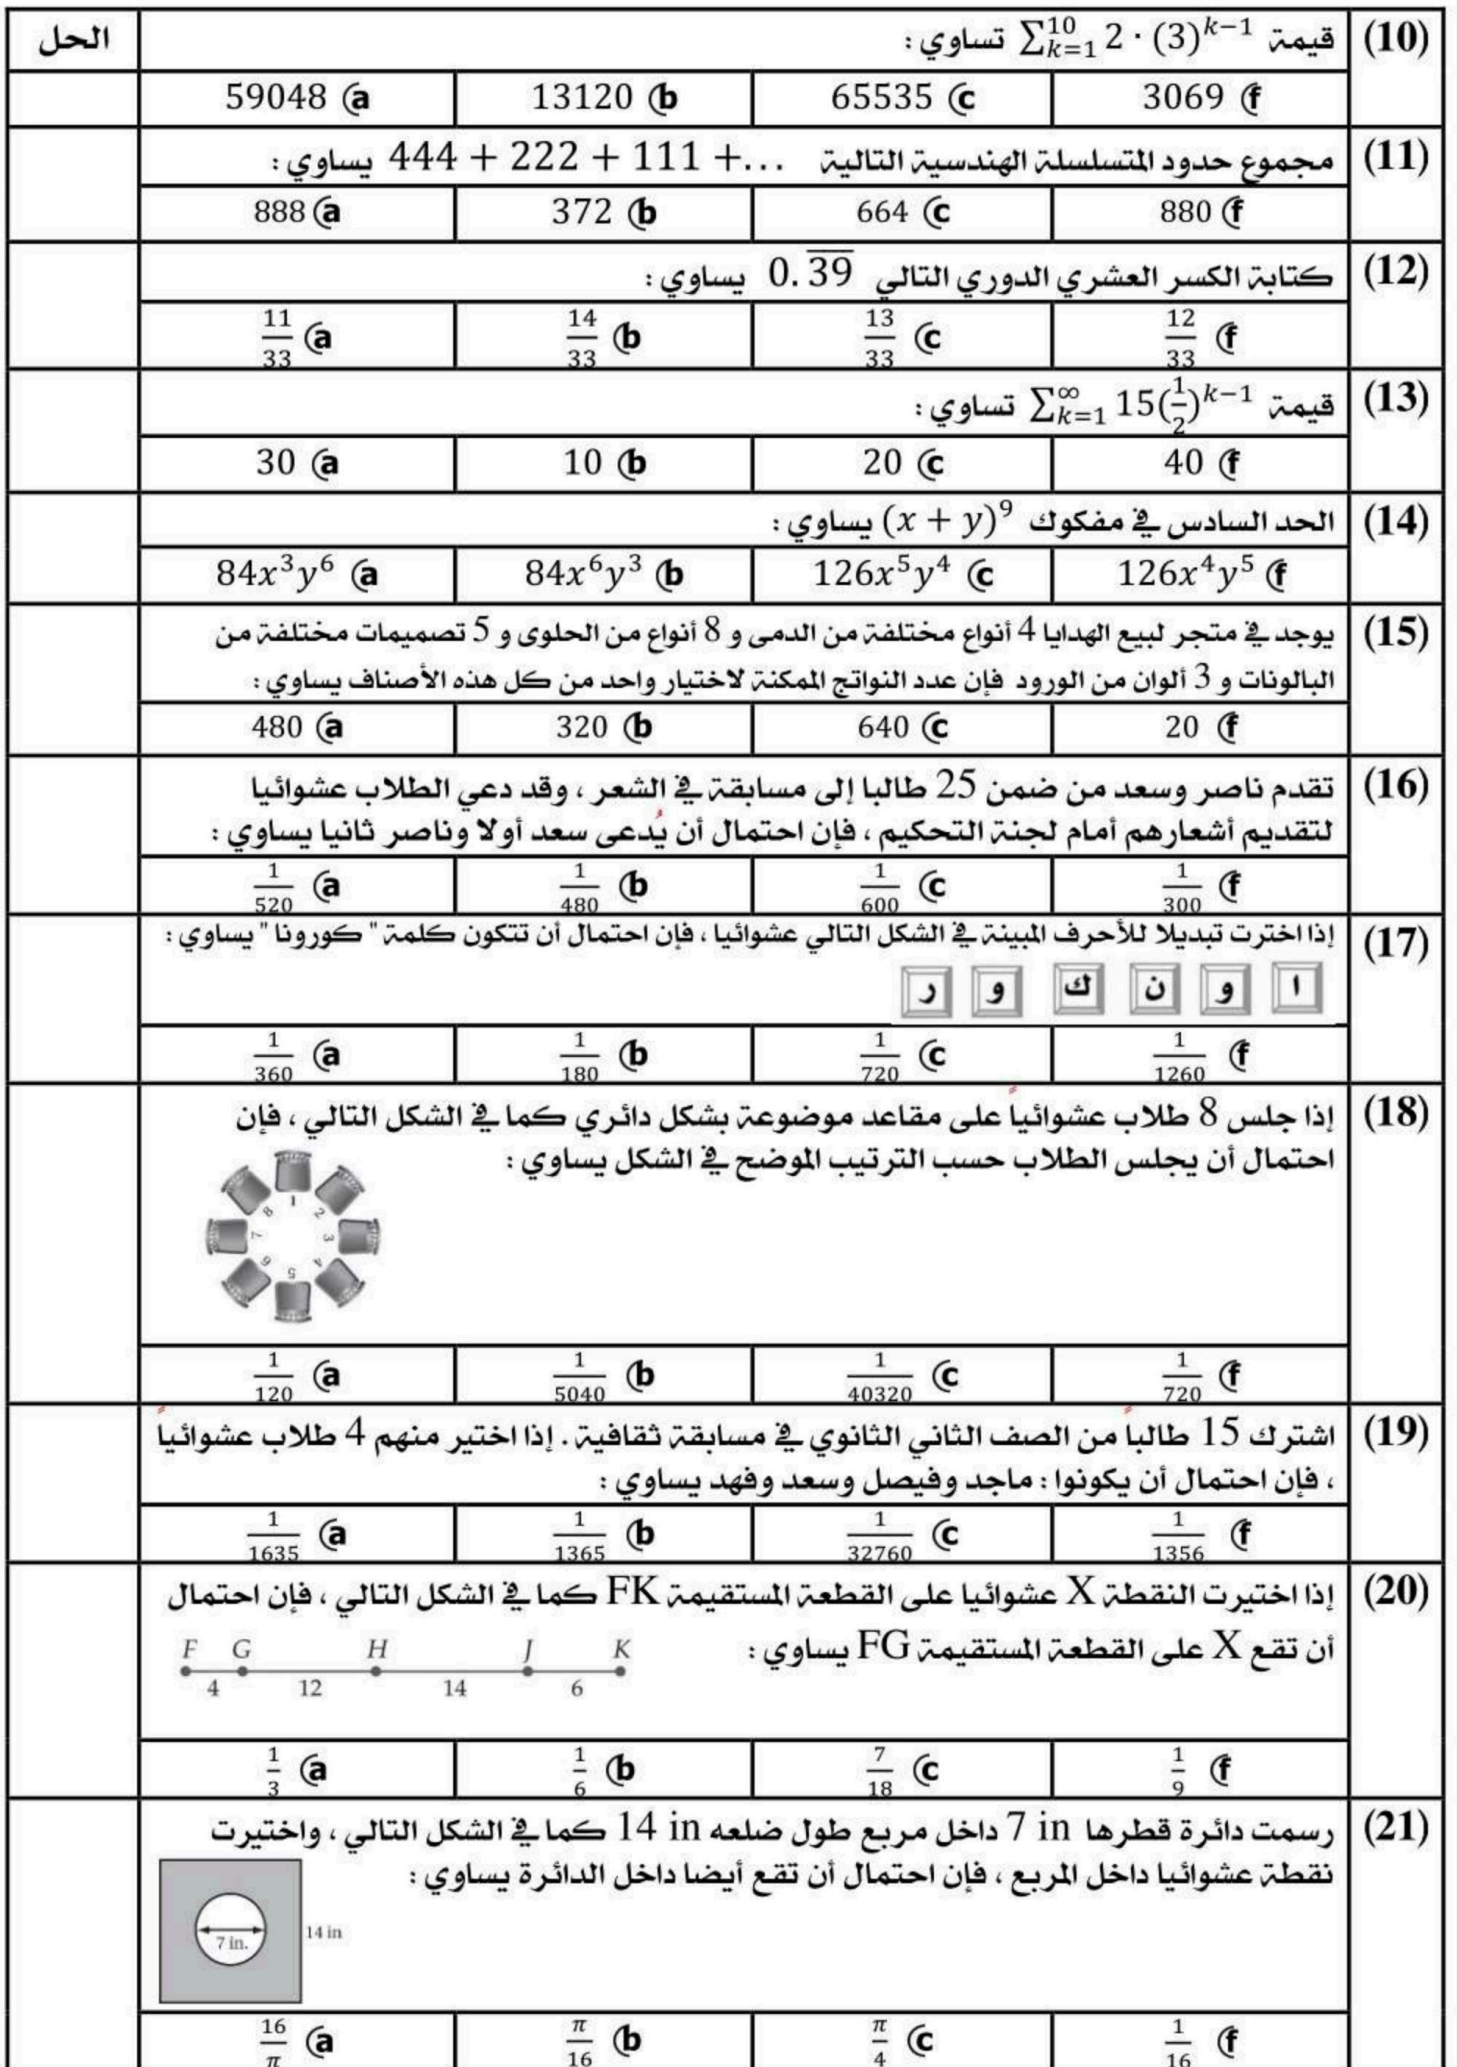 (10) قيمة $\sum_{k=1}^{10} 2 \cdot (3)^{k-1}$ تساوي : الحل
f) 3069 c) 65535 b) 13120 a) 59048
(11) مجموع حدود المتسلسلة الهندسية التالية 444 + 222 + 111 +... يساوي :
f) 880 c) 664 b) 372 a) 888
(12) كتابة الكسر العشري الدوري التالي $0.\overline{39}$ يساوي :
f) 12/33 c) 13/33 b) 14/33 a) 11/33
(13) قيمة $\sum_{k=1}^{\infty} 15(\frac{1}{2})^{k-1}$ تساوي :
f) 40 c) 20 b) 10 a) 30
(14) الحد السادس في مفكوك $(x + y)^9$ يساوي :
f) $126x^4y^5$ c) $126x^5y^4$ b) $84x^6y^3$ a) $84x^3y^6$
(15) يوجد في متجر لبيع الهدايا 4 أنواع مختلفة من الدمى و 8 أنواع من الحلوى و 5 تصميمات مختلفة من
البالونات و 3 ألوان من الورود فإن عدد النواتج الممكنة لاختيار واحد من كل هذه الأصناف يساوي :
f) 20 c) 640 b) 320 a) 480
(16) تقدم ناصر وسعد من ضمن 25 طالبا إلى مسابقة في الشعر ، وقد دعي الطلاب عشوائيا
لتقديم أشعارهم أمام لجنة التحكيم ، فإن احتمال أن يُدعى سعد أولا وناصر ثانيا يساوي :
f) 1/300 c) 1/600 b) 1/480 a) 1/520
(17) إذا اخترت تبديلا للأحرف المبينة في الشكل التالي عشوائيا ، فإن احتمال أن تتكون كلمة " كورونا " يساوي :
ا و ن ك و ر
f) 1/1260 c) 1/720 b) 1/180 a) 1/360
(18) إذا جلس 8 طلاب عشوائياً على مقاعد موضوعة بشكل دائري كما في الشكل التالي ، فإن
احتمال أن يجلس الطلاب حسب الترتيب الموضح في الشكل يساوي :
1 2 3 4 5 6 7 8
f) 1/720 c) 1/40320 b) 1/5040 a) 1/120
(19) اشترك 15 طالباً من الصف الثاني الثانوي في مسابقة ثقافية . إذا اختير منهم 4 طلاب عشوائياً
، فإن احتمال أن يكونوا : ماجد وفيصل وسعد وفهد يساوي :
f) 1/1356 c) 1/32760 b) 1/1365 a) 1/1635
(20) إذا اختيرت النقطة X عشوائيا على القطعة المستقيمة FK كما في الشكل التالي ، فإن احتمال
أن تقع X على القطعة المستقيمة FG يساوي :
F G H J K
4 12 14 6
f) 1/9 c) 7/18 b) 1/6 a) 1/3
(21) رسمت دائرة قطرها 7 in داخل مربع طول ضلعه 14 in كما في الشكل التالي ، واختيرت
نقطة عشوائيا داخل المربع ، فإن احتمال أن تقع أيضا داخل الدائرة يساوي :
7 in. 14 in
f) 1/16 c) π/4 b) π/16 a) 16/π